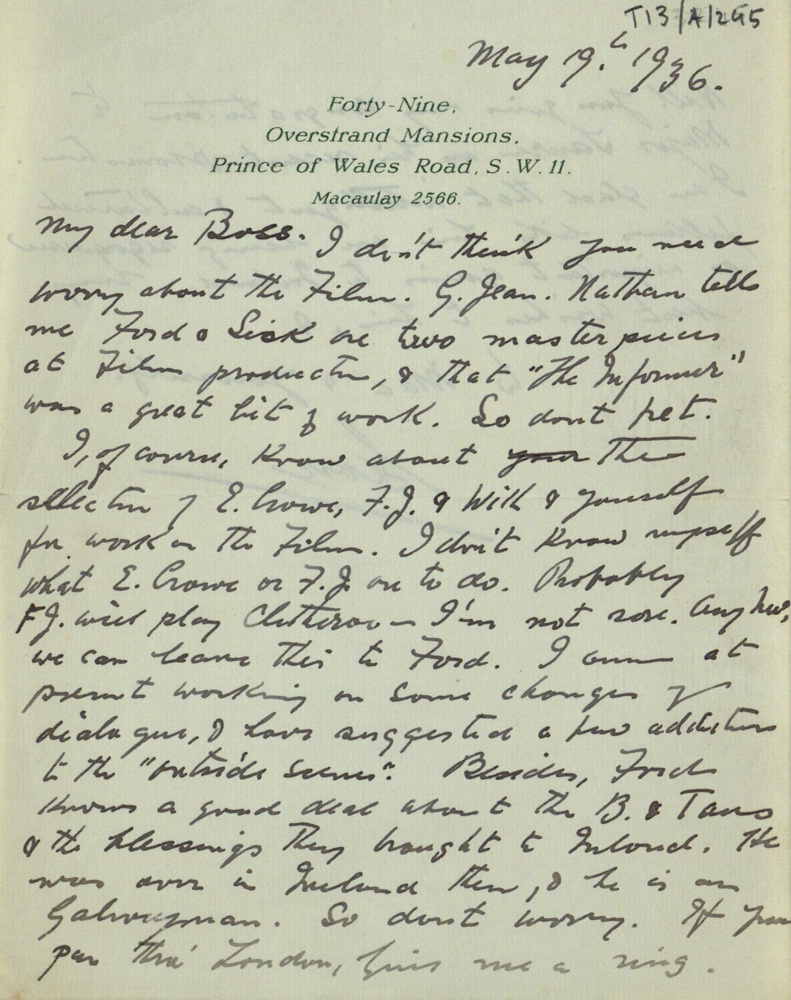 T13/A/295
May 19.th 1936.
Forty-Nine,
Overstrand Mansions,
Prince of Wales Road, S.W.11.
Macaulay 2566.
My dear Boss. I don't think you need
worry about the Film. G. Jean. Nathan tells
me Ford & Sisk are two masterpieces
at Film production, & that "The Informer"
was a great bit of work. So dont fret.
I, of course, know about your the
selection of E. Crowe, F.J. & Will & yourself
for work on the Film. I don't know myself
what E. Crowe or F.J. are to do. Probably
F.J. will play Clitheroe — I'm not sore. Anyhow,
we can leave this to Ford. I am at
present working on some changes of
dialogue, & have suggested a few additions
to the "outside scenes". Besides, Ford
knows a good deal about the B. & Tans
& the blessings they brought to Ireland. He
was over in Ireland then, & he is an
Galwayman. So dont worry. If you
pass thro' London, give me a ring.